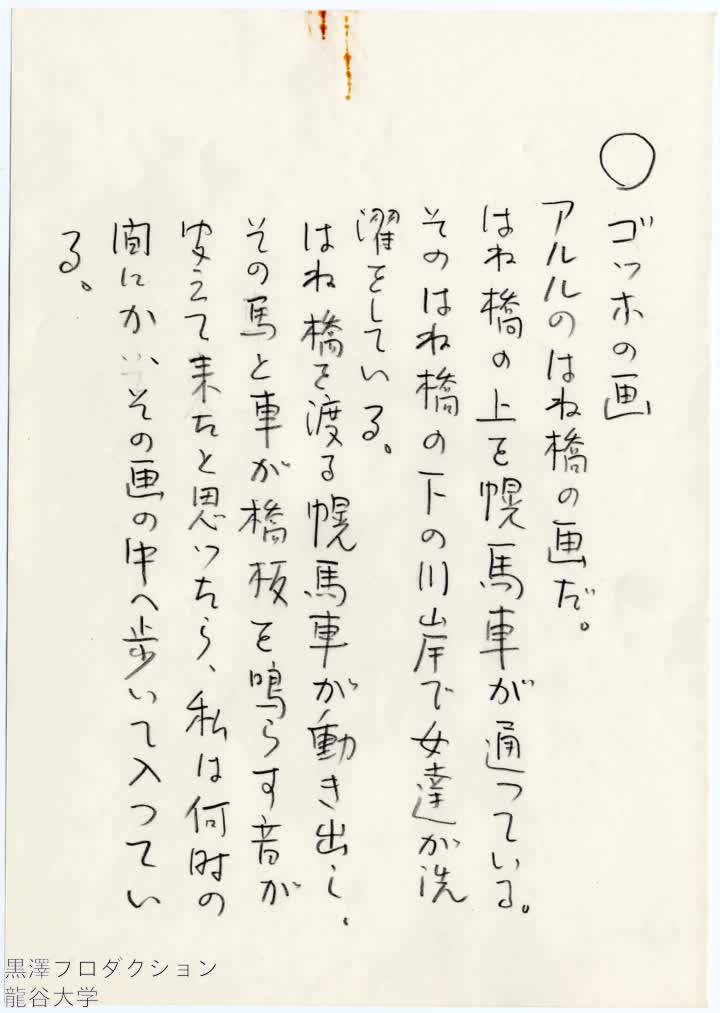 ○ ゴッホの画
アルルのはね橋の画だ。
はね橋の上を幌馬車が通っている。
そのはね橋の下の川岸で女達が洗
濯をしている。
はね橋を渡る幌馬車が動き出し、
その馬と車が橋板を鳴らす音が
聞えて来たと思ったら、私は何時の
間にか、その画の中へ歩いて入ってい
る。
黒澤プロダクション
龍谷大学